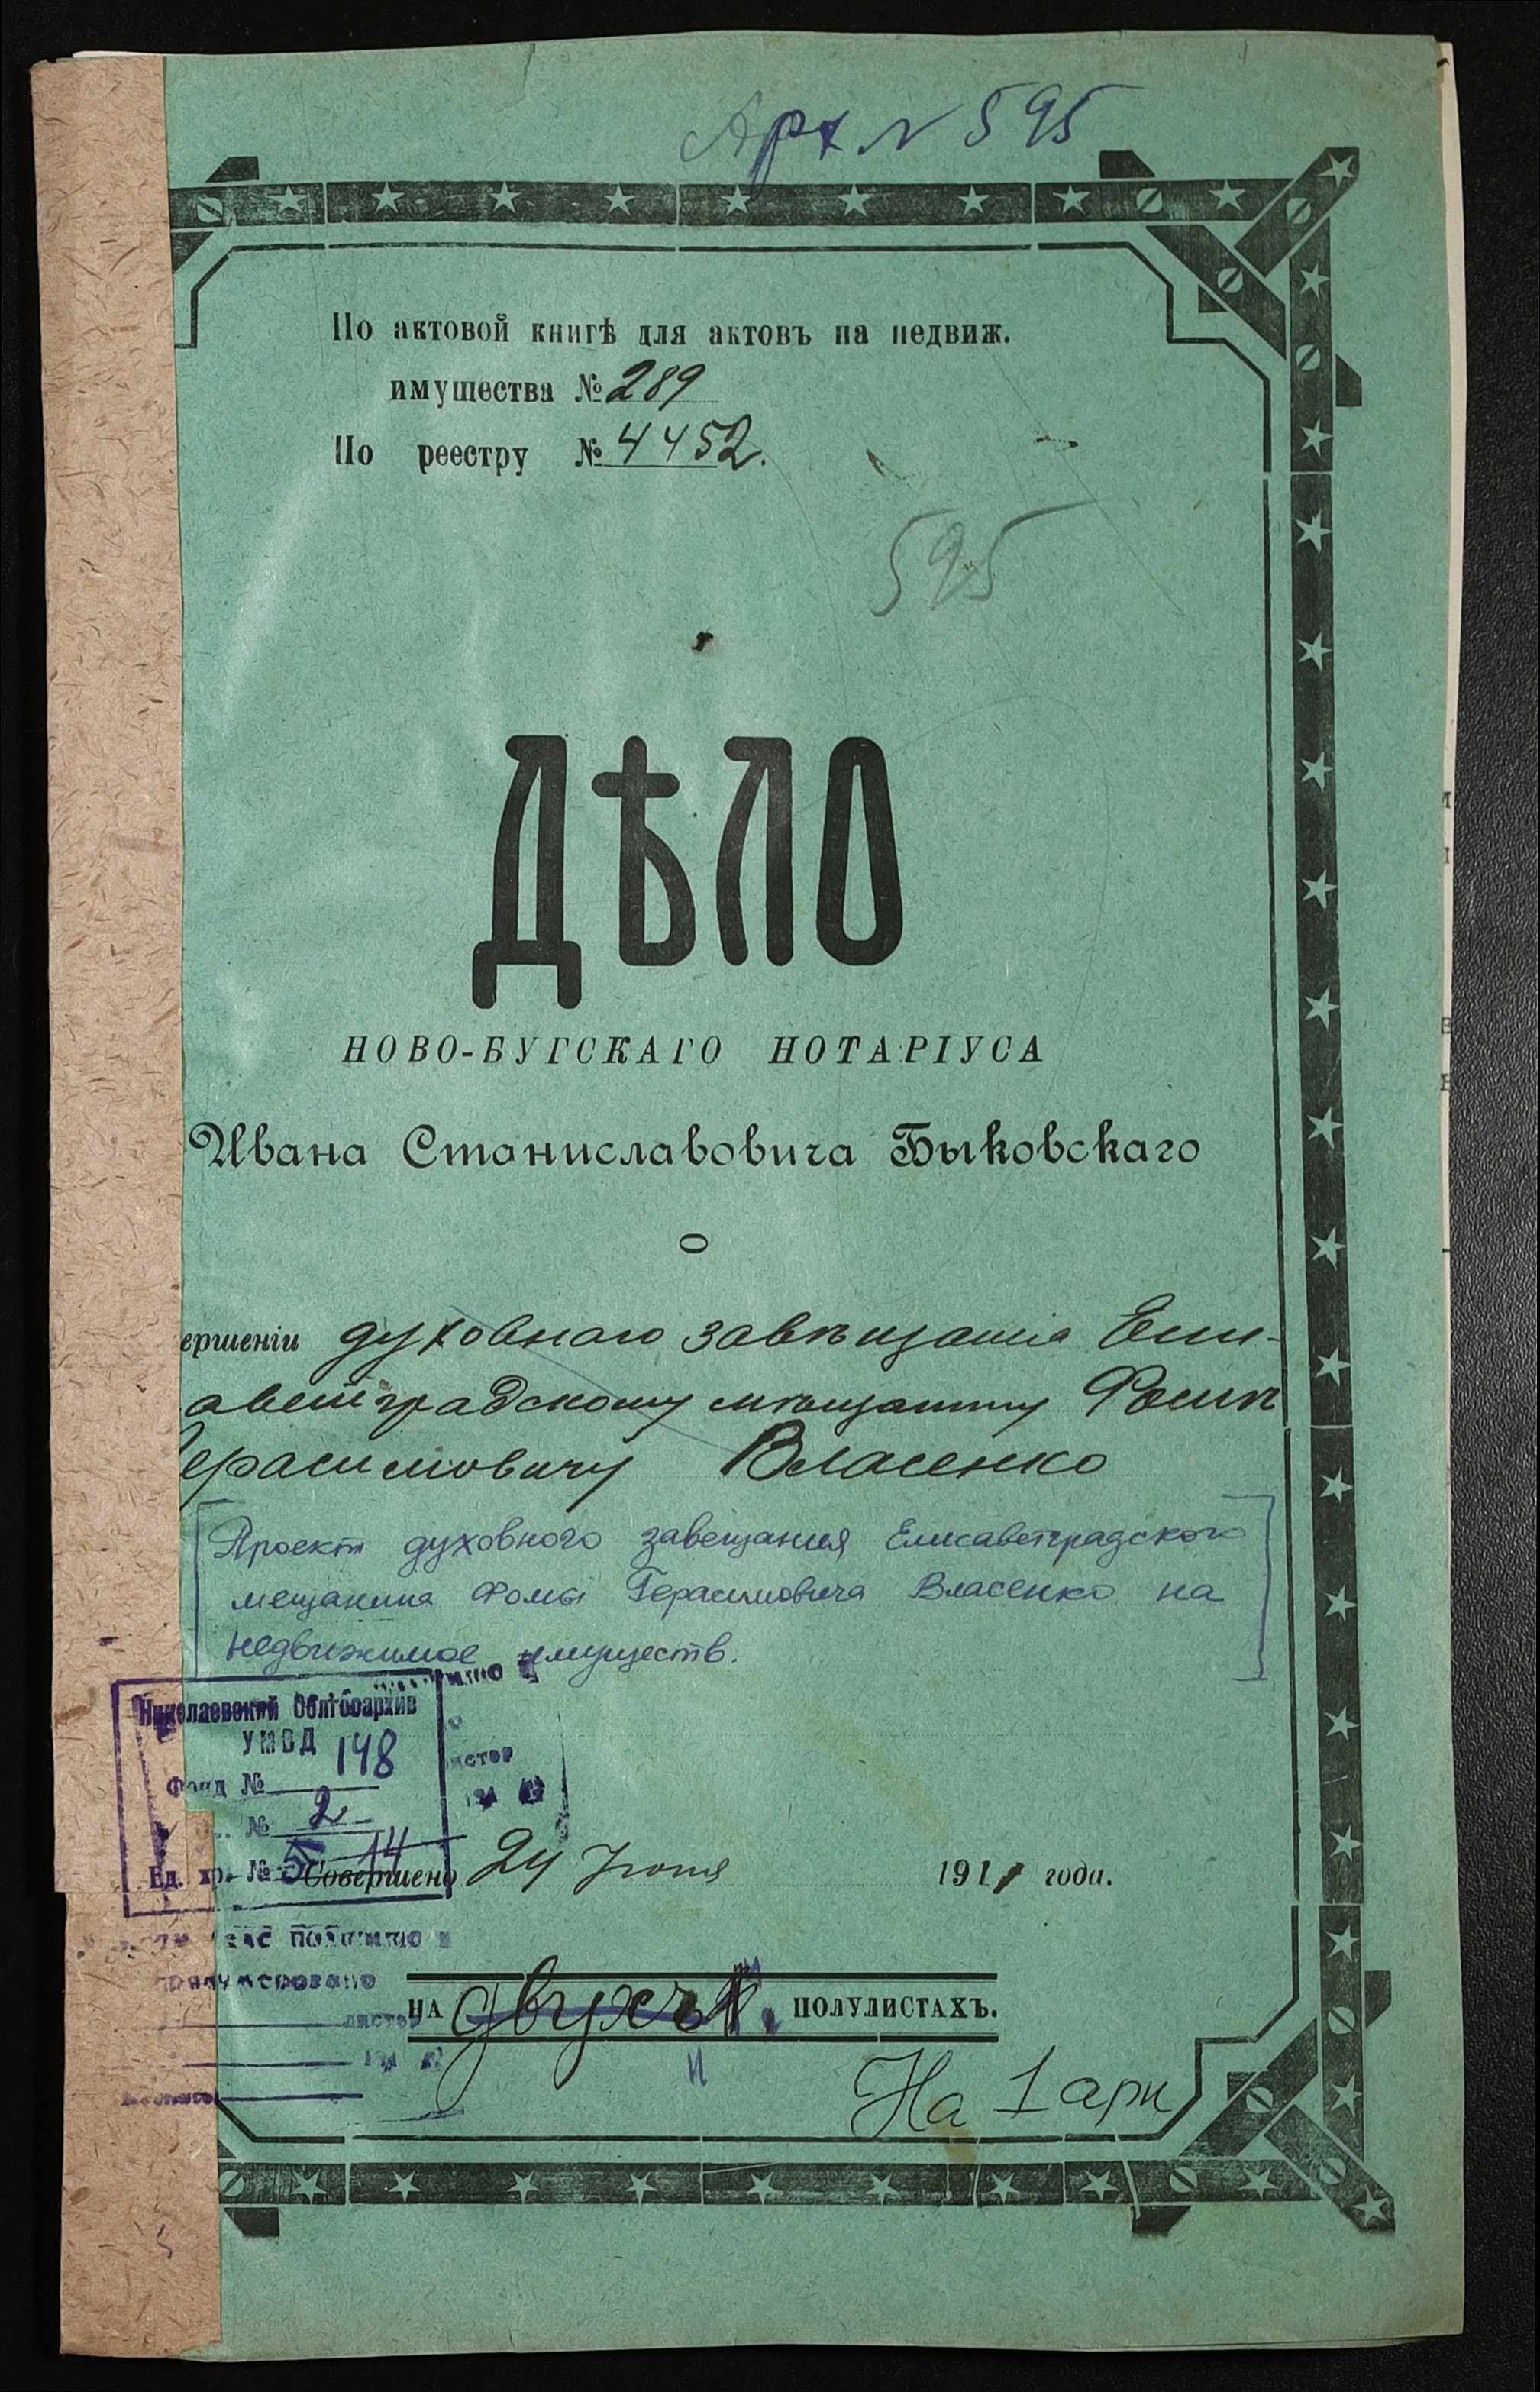 Арх № 595
По актовой книгѣ для актовъ на недвиж.
имущества № 289
По реестру № 4452.
595
ДѢЛО
НОВО-БУГСКАГО НОТАРІУСА
Ивана Станиславовича Быковскаго
О
ершеніи духовнаго завѣщанія Ели-
аветградскому мѣщанину Фомѣ
Герасимовичу Власенко
Проект духовного завещания Елисаветградского
мещанина Фомы Герасимовича Власенко на
недвижимое имуществ.
Николаевский Облгосархив
УМВД
Фонд № 148
№ 2
Ед. хр. № 5 14
Совершено 24 Іюня 1911 года.
пронумеровано
листов
НА двухъ ПОЛУЛИСТАХЪ.
На 1 арк